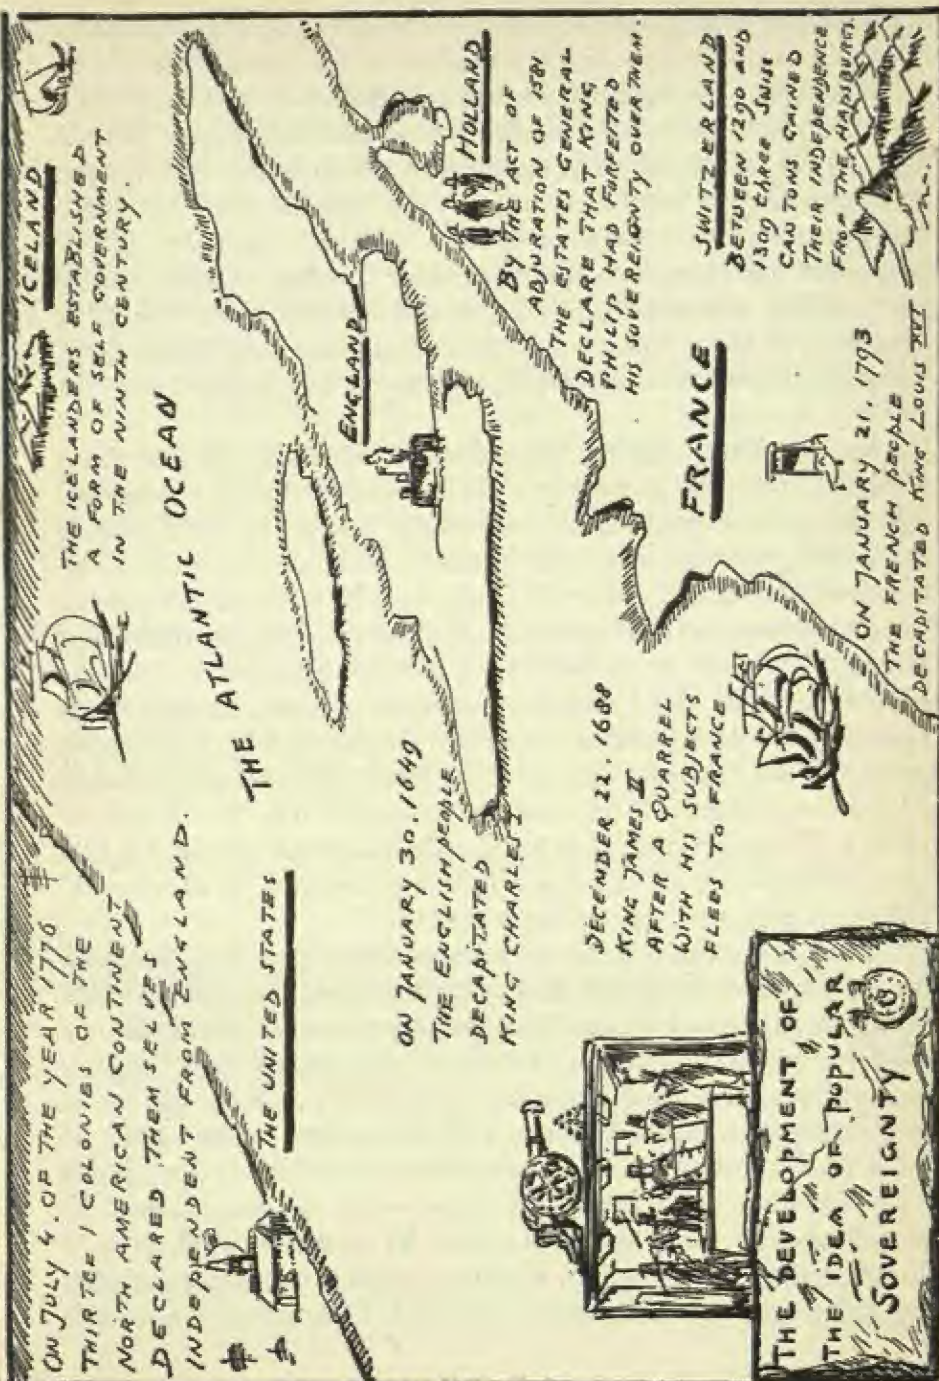 ON JULY 4. OF THE YEAR 1776
THIRTEEN COLONIES OF THE
NORTH AMERICAN CONTINENT
DECLARED THEMSELVES
INDEPENDENT FROM ENGLAND.
THE UNITED STATES
ICELAND
THE ICELANDERS ESTABLISHED
A FORM OF SELF GOVERNMENT
IN THE NINTH CENTURY.
THE ATLANTIC OCEAN
ENGLAND
ON JANUARY 30. 1649
THE ENGLISH PEOPLE
DECAPITATED
KING CHARLES I
HOLLAND
BY THE ACT OF
ABJURATION OF 1581
THE ESTATES GENERAL
DECLARE THAT KING
PHILIP HAD FORFEITED
HIS SOVEREIGNTY OVER THEM.
DECEMBER 22. 1688
KING JAMES II
AFTER A QUARREL
WITH HIS SUBJECTS
FLEES TO FRANCE
FRANCE
ON JANUARY 21. 1793
THE FRENCH PEOPLE
DECAPITATED KING LOUIS XVI
SWITZERLAND
BETWEEN 1290 AND
1309 THREE SWISS
CANTONS GAINED
THEIR INDEPENDENCE
FROM THE HAPSBURGS.
THE DEVELOPMENT OF
THE IDEA OF POPULAR
SOVEREIGNTY